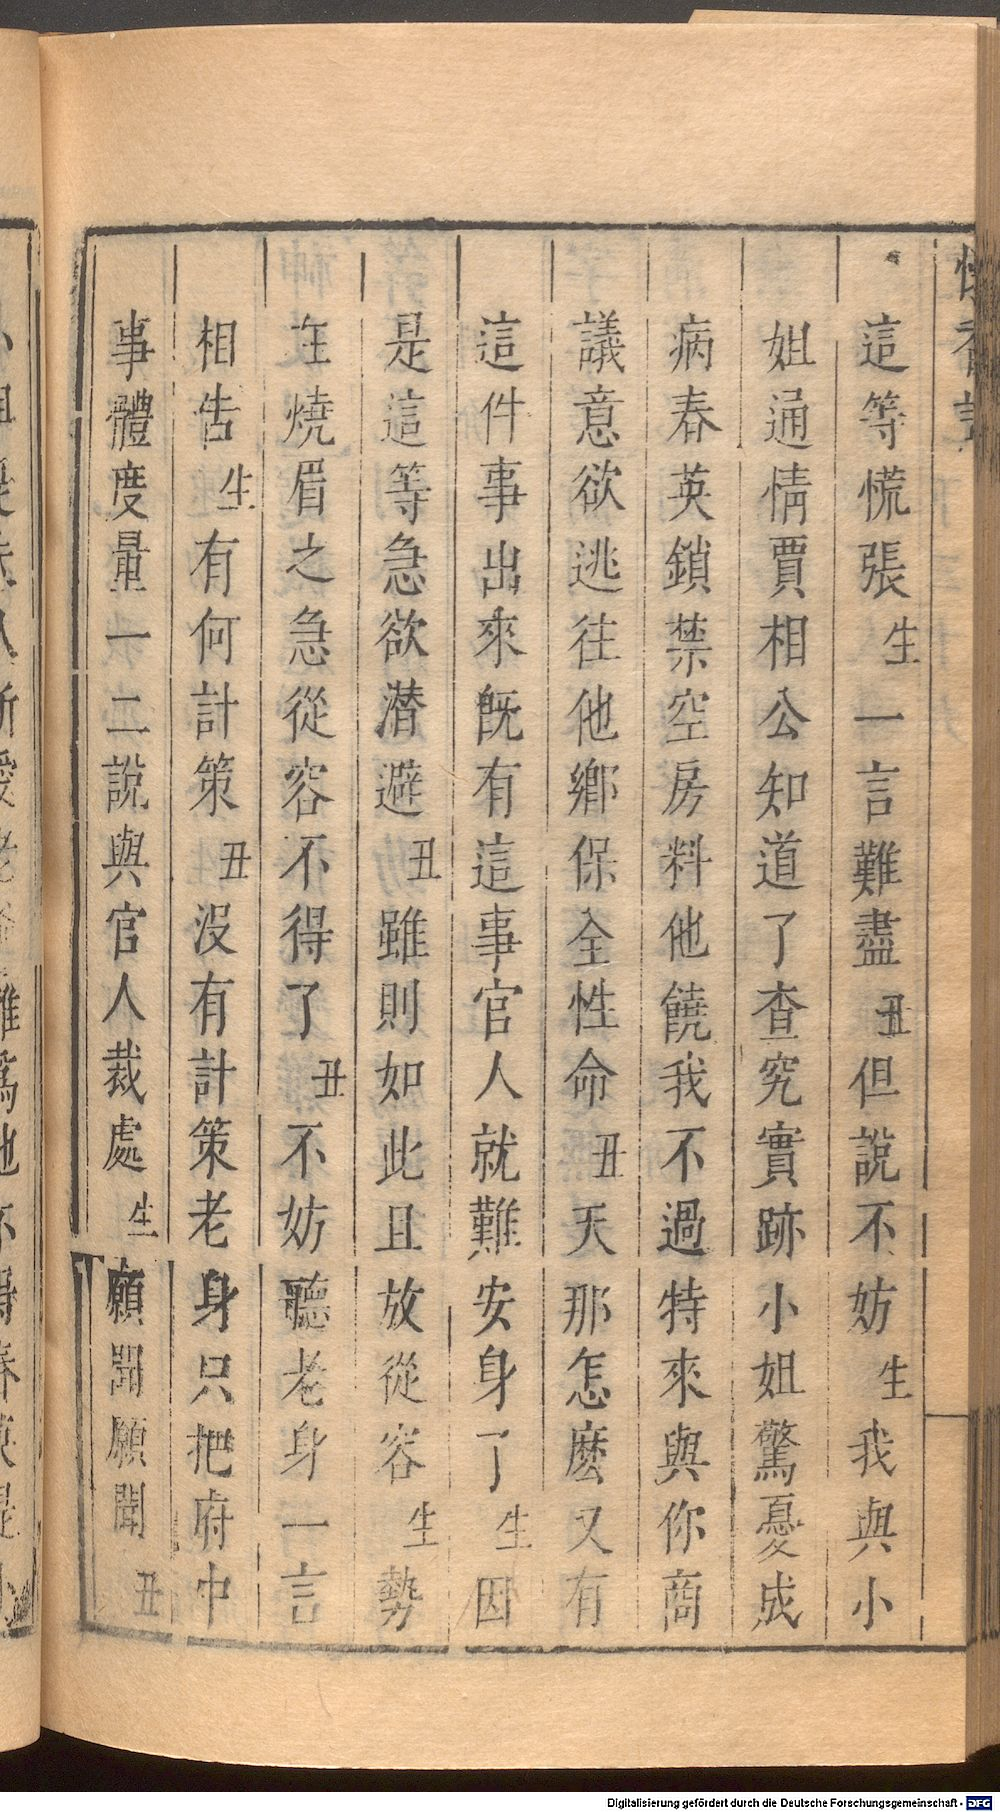 懷香記
這等慌張生一言難盡丑但說不妨生我與小
姐通情賈相公知道了查究實跡小姐驚憂成
病春英鎖禁空房料他饒我不過特來與你商
議意欲逃往他鄉保全性命丑天那怎麽又有
這件事出來旣有這事官人就難安身了生因
是這等急欲潛避丑雖則如此且放從容生勢
在燒眉之急從容不得了丑不妨聽老身一言
相告生有何計策丑沒有計策老身只把府中
事體度量一二說與官人裁處生願聞願聞丑
Digitalisierung gefördert durch die Deutsche Forschungsgemeinschaft - DFG